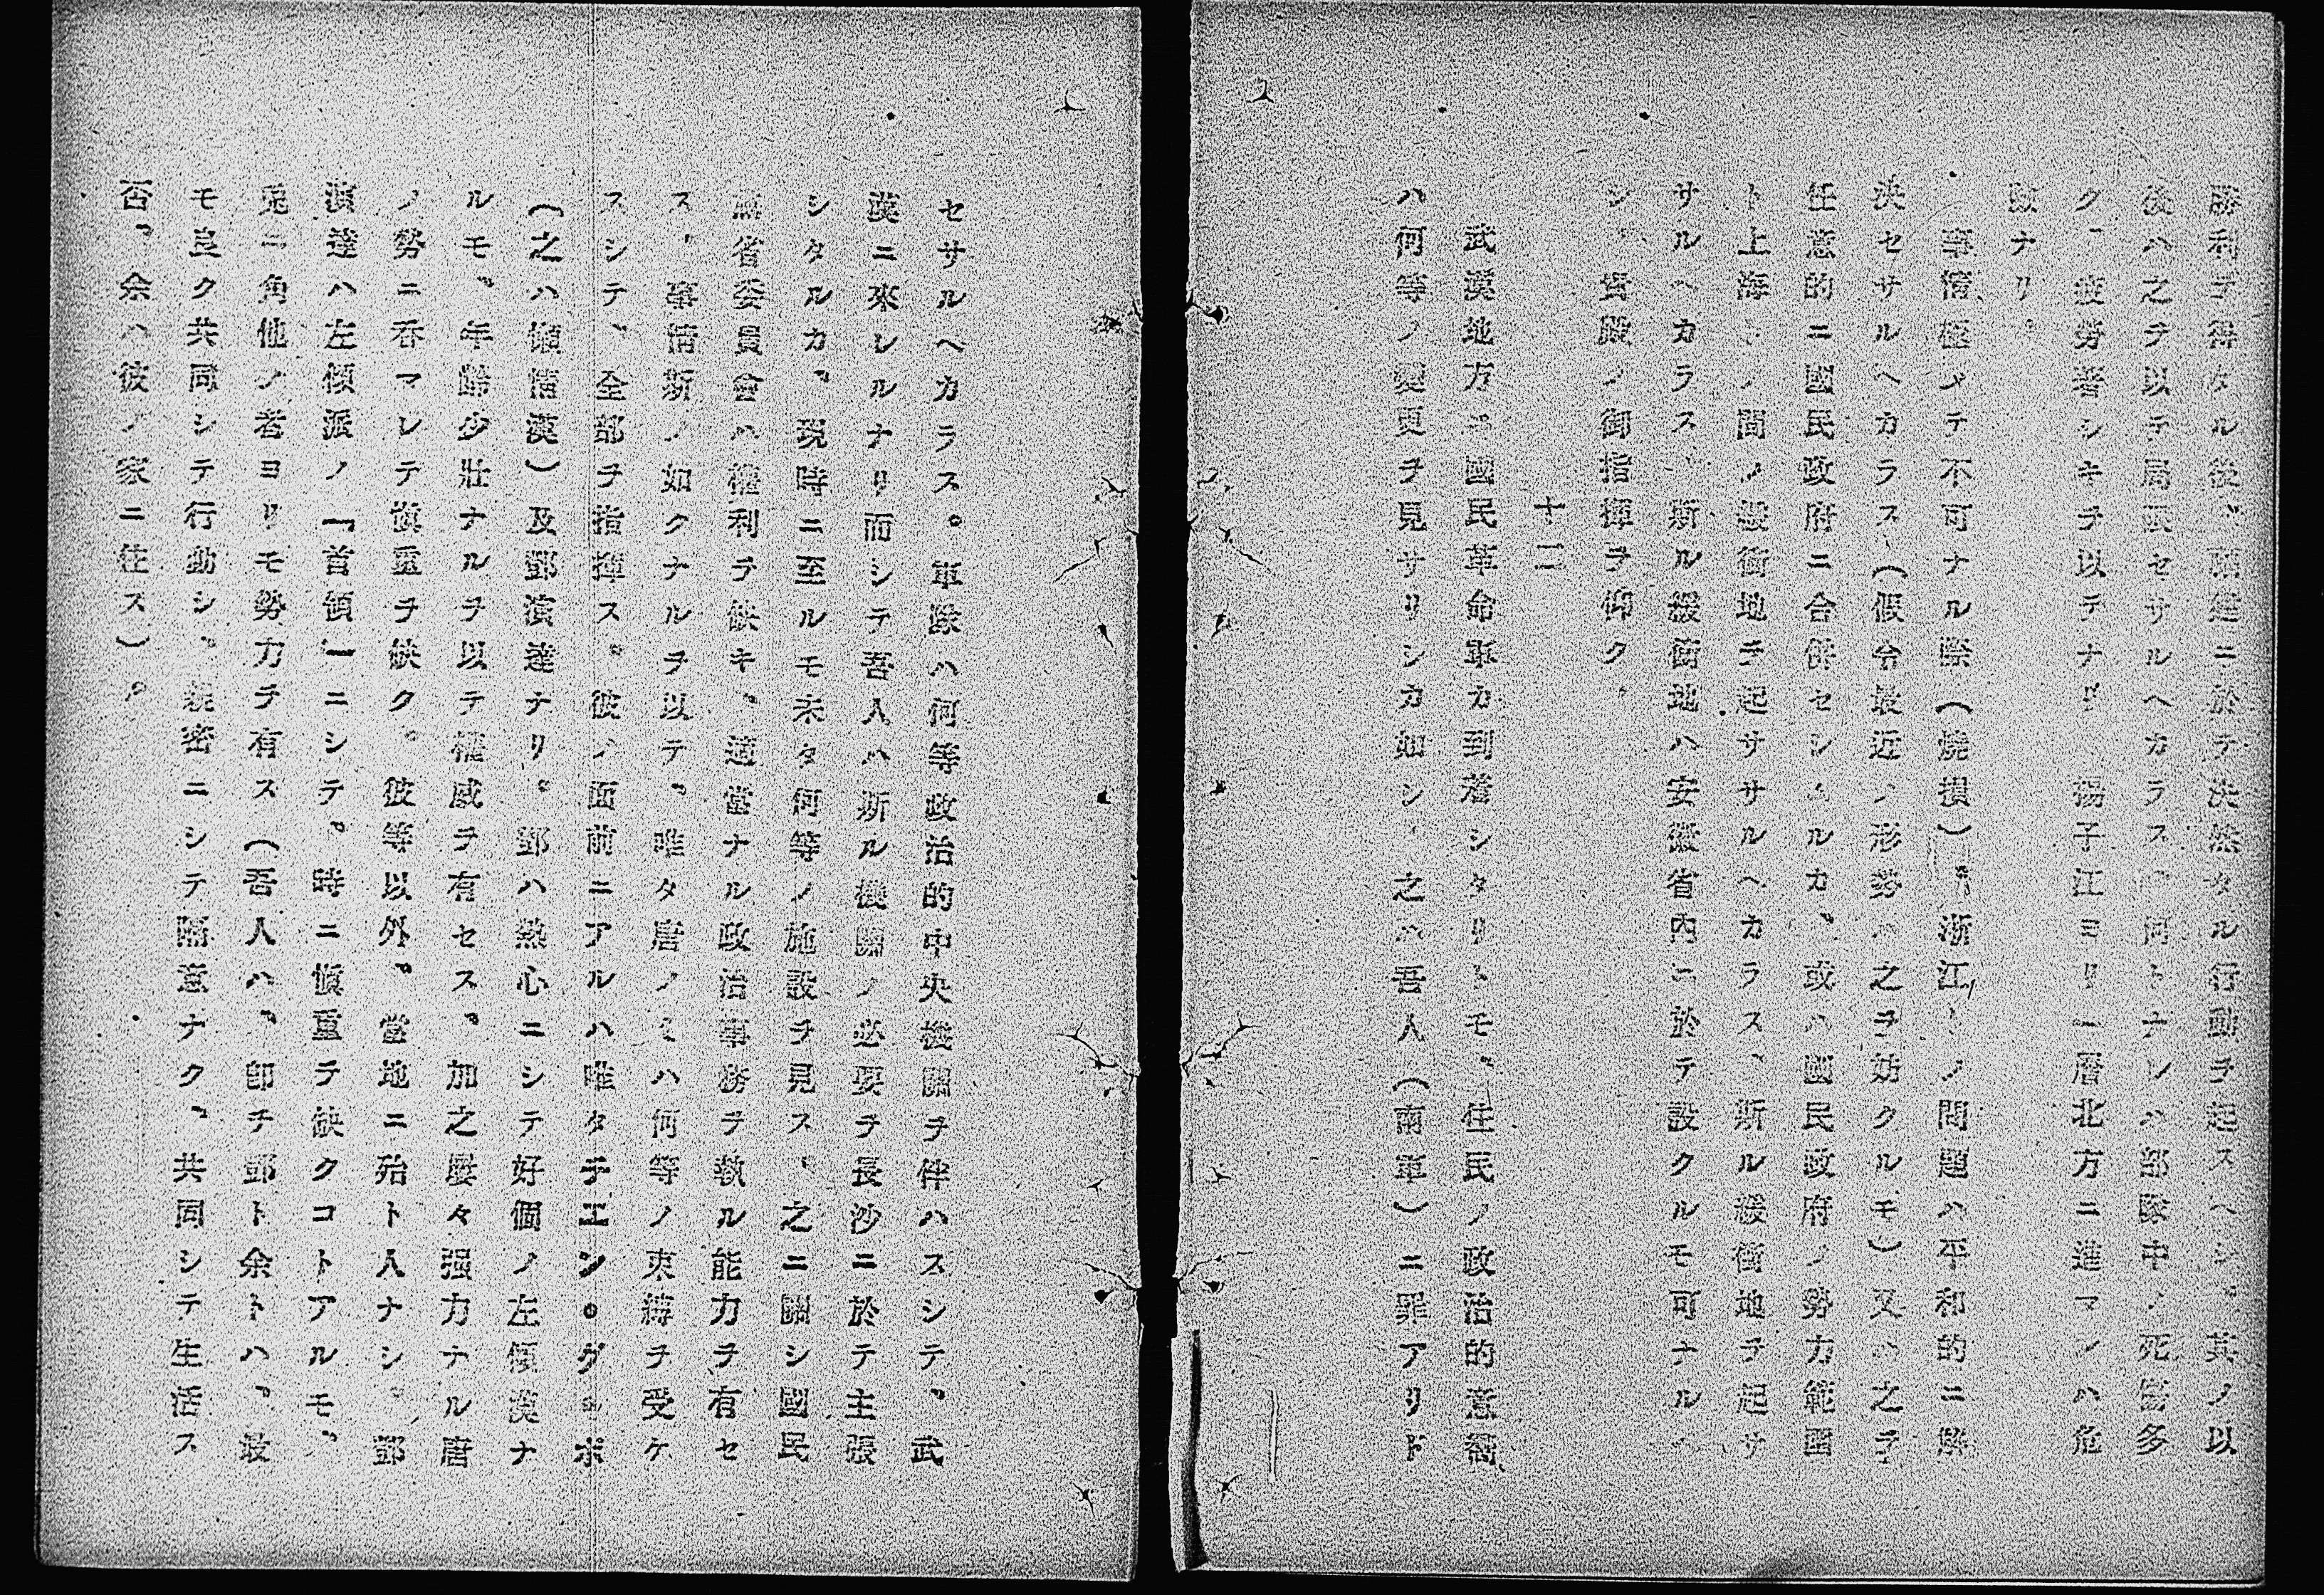 勝利ヲ得タル後、頭道ニ於テ決然タル行動ヲ起スヘシ。其ノ以
後ハ之ヲ以テ局限セサルヘカラス、何トナレハ部隊中ノ死傷多
ク、疲勞著シキヲ以テナリ。揚子江ヨリ一層北方ニ進マンハ危
險ナリ。
事情極メテ不可ナル際（燒損）、浙江トノ問題ハ平和的ニ解
決セサルヘカラス、（假令最近ノ形勢ハ之ヲ妨クルモ）又ハ之ヲ
任意的ニ國民政府ニ合併セシムルカ、或ハ國民政府ノ勢力範圍
ト上海トノ間ノ緩衝地ヲ起ササルヘカラス、斯ル緩衝地ヲ起サ
サルヘカラス、斯ル緩衝地ハ安徽省内ニ於テ設クルモ可ナルヘ
シ、貴殿ノ御指揮ヲ仰ク。
十二
武漢地方ニ國民革命軍カ到着シタリトモ、住民ノ政治的意嚮
ハ何等ノ變更ヲ見サリシカ如シ、之ハ吾人（南軍）ニ罪アリト
セサルヘカラス。軍隊ハ何等政治的中央機關ヲ伴ハスシテ、武
漢ニ來レルナリ而シテ吾人ハ斯ル機關ノ必要ヲ長沙ニ於テ主張
シタルカ、現時ニ至ルモ未タ何等ノ施設ヲ見ス、之ニ關シ國民
黨省委員會ハ權利ヲ缺キ、適當ナル政治事務ヲ執ル能力ヲ有セ
ス、事情斯ノ如クナルヲ以テ、唯タ唐ノミハ何等ノ束縛ヲ受ケ
スシテ、全部ヲ指揮ス。彼ノ面前ニアルハ唯タテエン。グ。ボ
（之ハ傾情漢）及鄧演達ナリ。鄧ハ熱心ニシテ好個ノ左傾漢ナ
ルモ、年齡少壯ナルヲ以テ權威ヲ有セス、加之屢々强力ナル唐
ノ勢ニ呑マレテ愼重ヲ缺ク。彼等以外、當地ニ殆ト人ナシ。鄧
演達ハ左傾派ノ「首領」ニシテ、時ニ愼重ヲ缺クコトアルモ、
兎ニ角他ノ者ヨリモ勢力ヲ有ス（吾人ハ、卽チ鄧ト余トハ、最
モ良ク共同シテ行動シ、親密ニシテ隔意ナク、共同シテ生活ス
否、余ハ彼ノ家ニ住ス）。